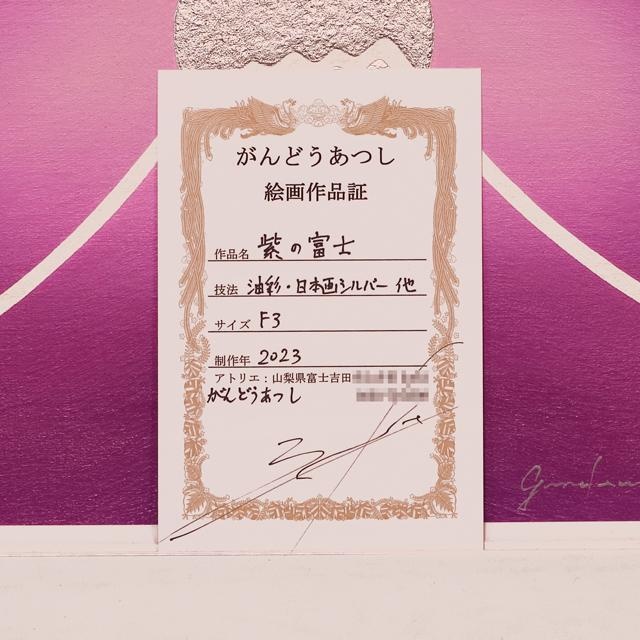 がんどうあつし
絵画作品証
作品名 紫の富士
技法 油彩・日本画シルバー 他
サイズ F3
制作年 2023
アトリエ：山梨県富士吉田
がんどうあつし